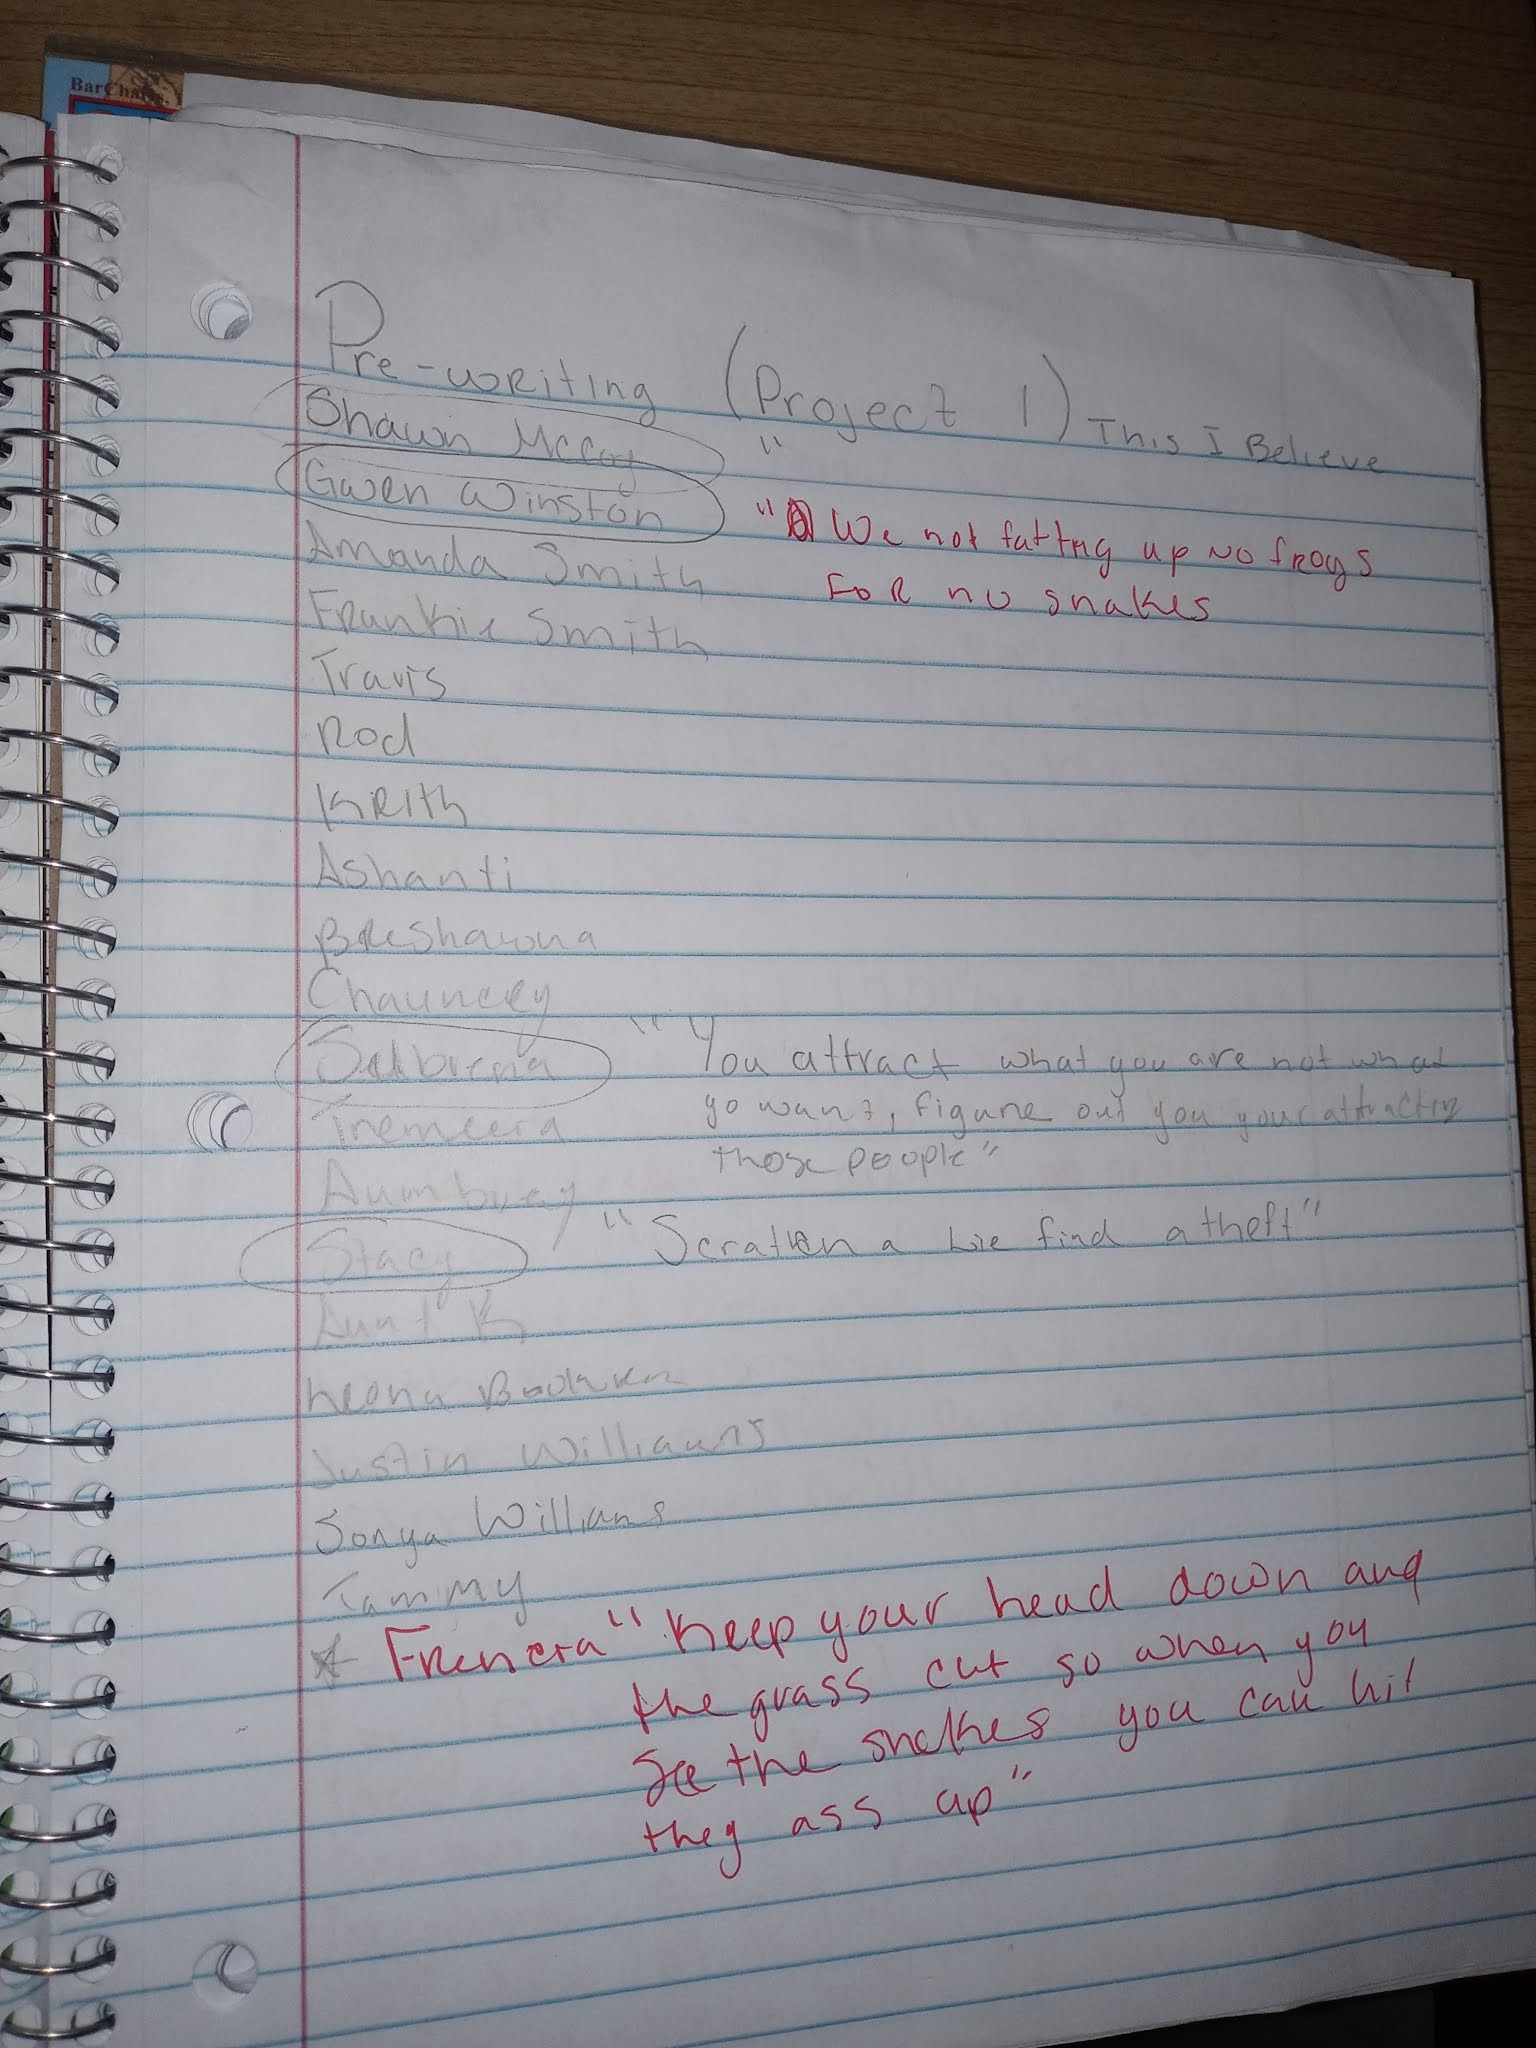 BarCharts,
Pre-writing (Project 1) This I Believe
Shawn McCoy "
Gwen Winston "We not fatting up no frogs
Amanda Smith For no snakes
Frankie Smith
Travis
Rod
Keith
Ashanti
Breshawna
Chauncey
" "You attract what you are not what
yo want, figure out you your attracting
those people"
Stacy " "Scratch a lie find a theft"
Aunt K
Justin Williams
Sonya Williams
Tammy
"Keep your head down and
the grass cut so when you
See the snakes you can hit
they ass up"